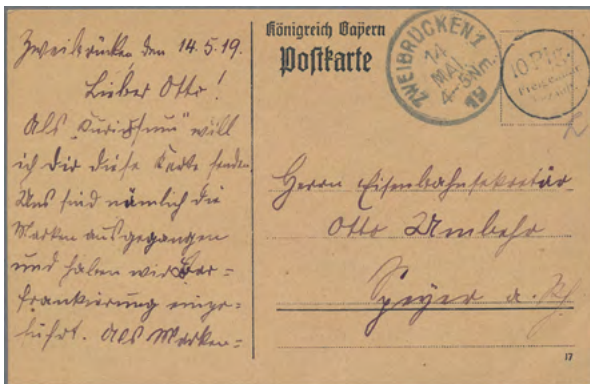 Zweibrücken, den 14.5.19.
Lieber Otto!
Als "Curiosum" will
ich Dir diese Karte senden.
Uns sind nämlich die
Marken ausgegangen
und haben wir Bar=
frankierung einge=
führt. Als Marken=
Königreich Bayern
Postkarte
ZWEIBRÜCKEN 1
14
MAI
4-5 Nm.
19
10 Pfg.
Herrn Eisenbahnsekretär
Otto Umbehr
Speyer a. Rh
17